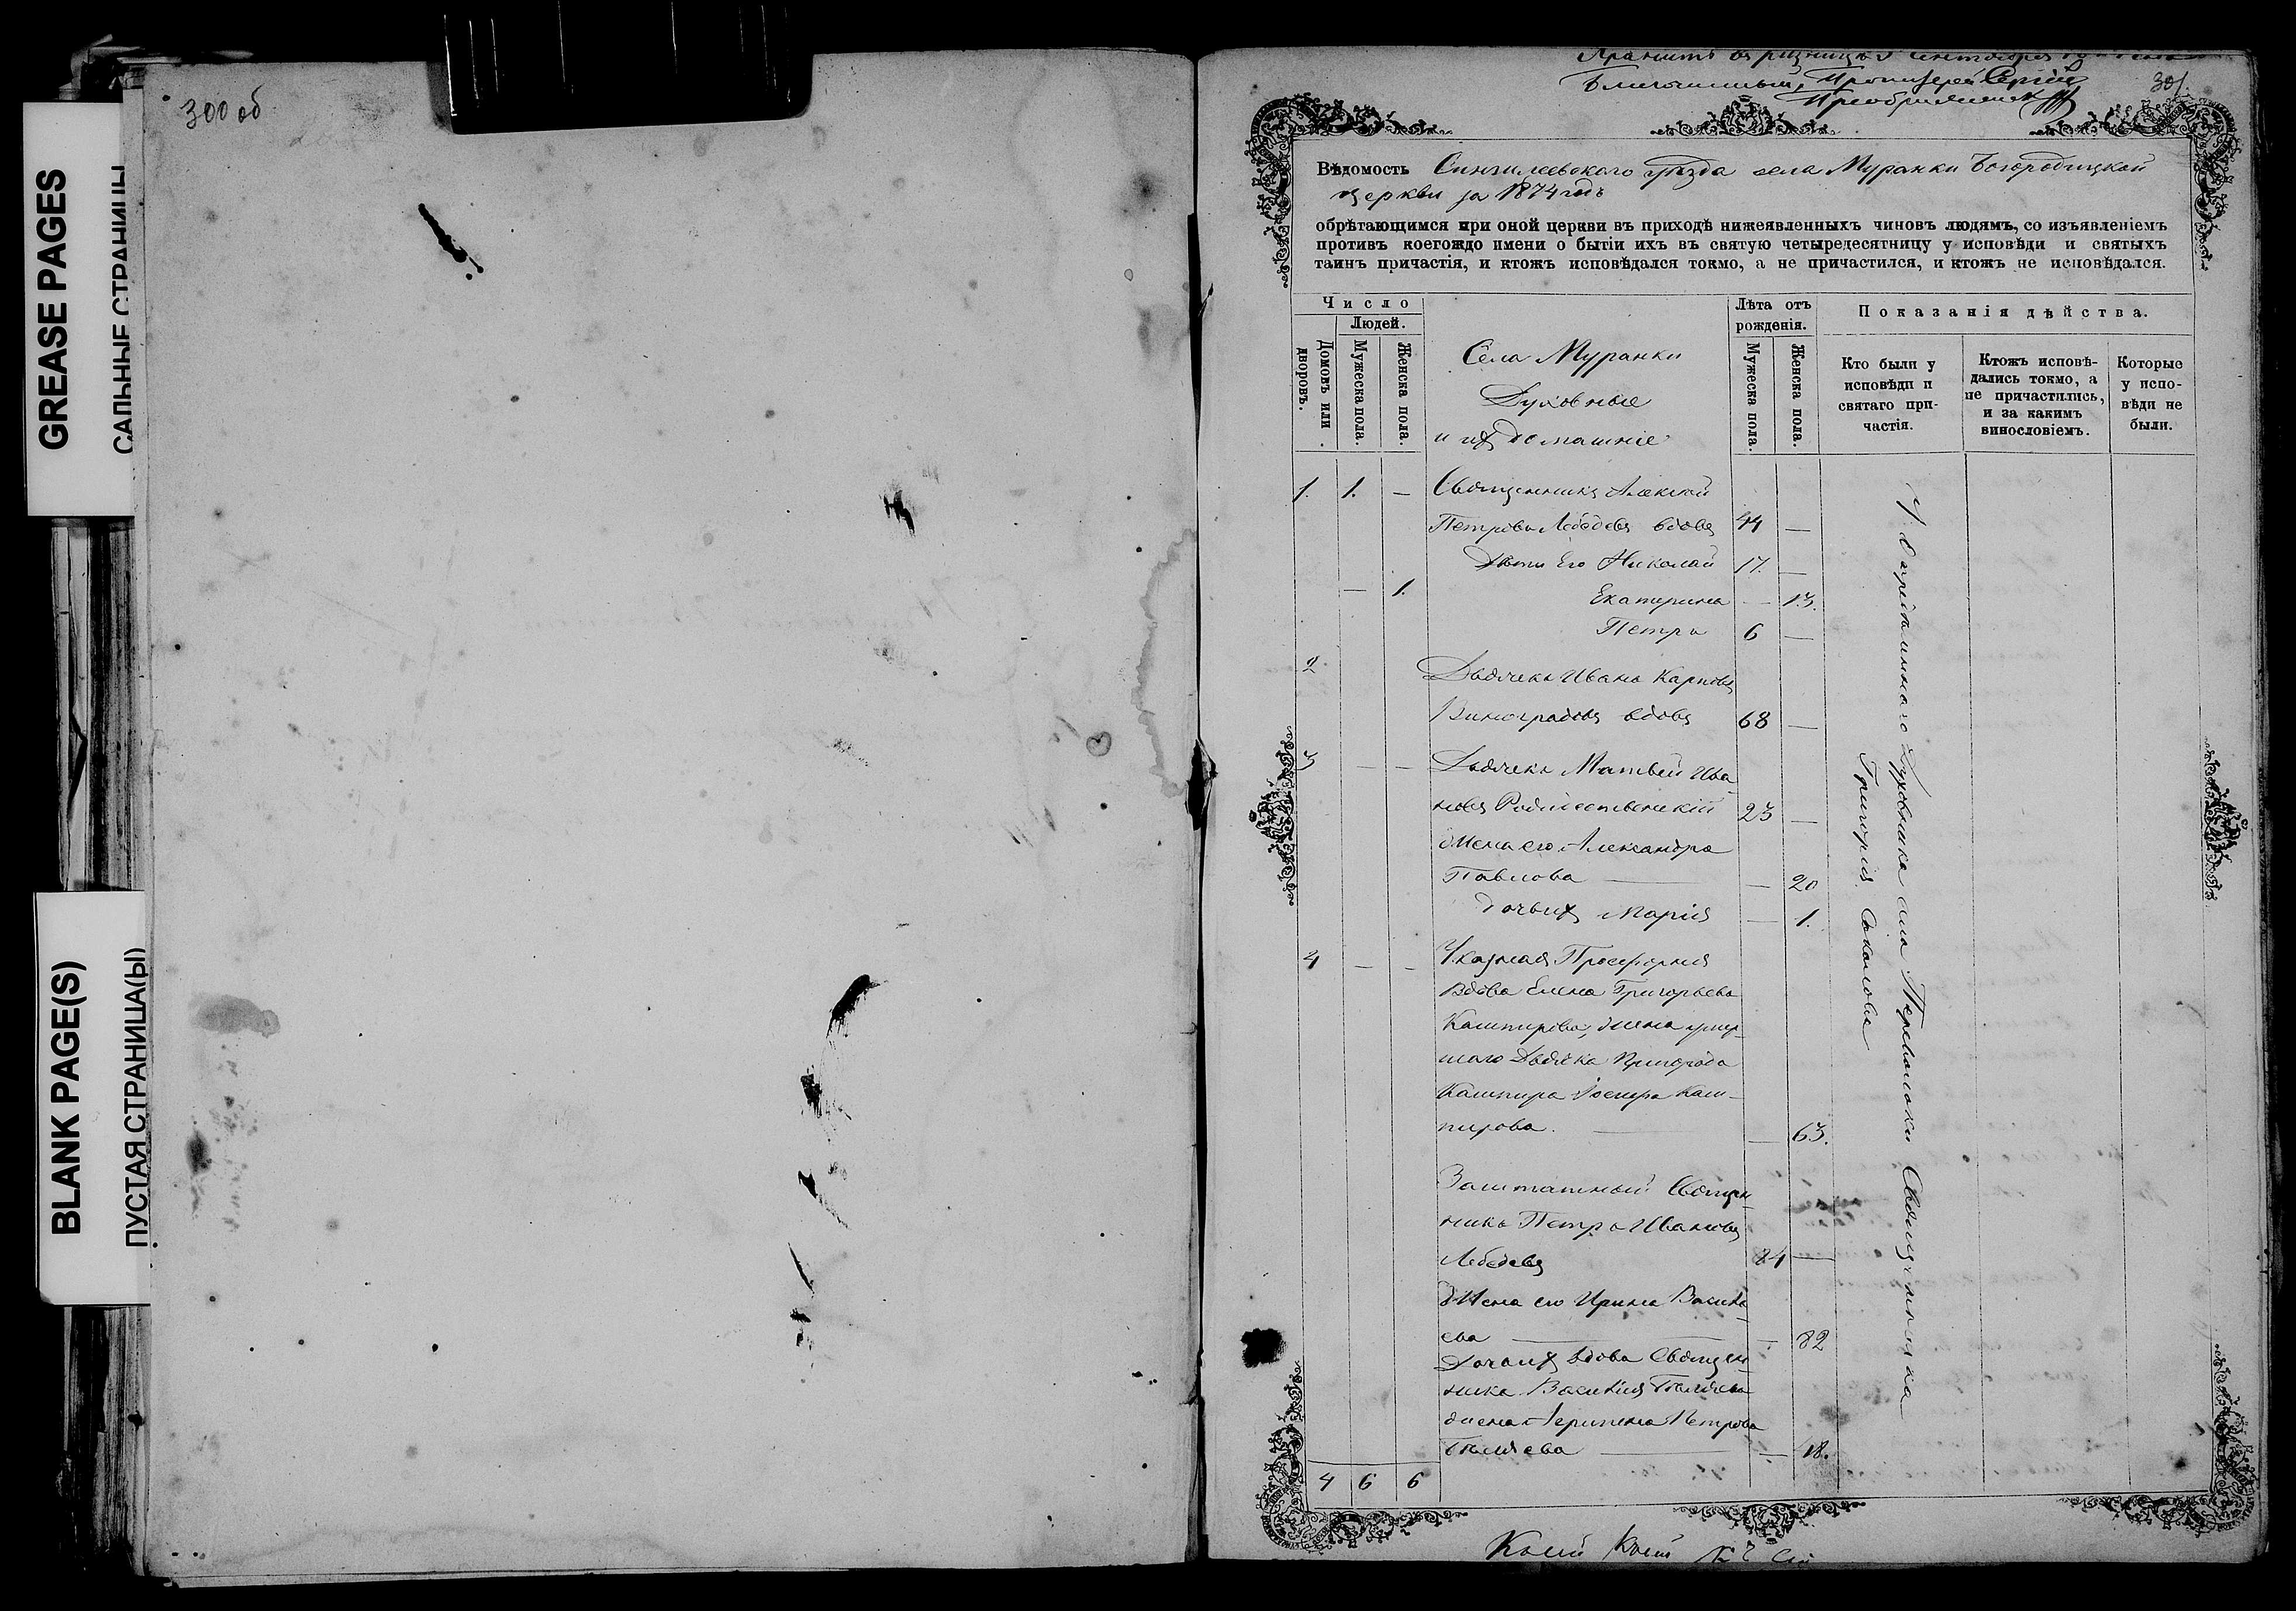 GREASE PAGES
САЛЬНЫЕ СТРАНИЦЫ
BLANK PAGE(S)
ПУСТАЯ СТРАНИЦА(Ы)
300 об
Хранить въ ризницѣ
Благочинный, Протоіерей Сергій
Преображенскій
301.
Вѣдомость Сингилеевского уѣзда села Муранки Богородицкой
церкви за 1874 годъ
обрѣтающимся при оной церкви въ приходѣ нижеявленныхъ чиновъ людямъ, со изъявленіемъ
противъ коегождо имени о бытіи ихъ въ святую четыредесятницу у исповѣди и святыхъ
таинъ причастія, и ктожъ исповѣдался токмо, а не причастился, и ктожъ не исповѣдался.
Число
Людей.
Домовъ или дворовъ.
Мужеска пола.
Женска пола.
Села Муранки
Духовные
и ихъ домашніе
Лѣта отъ рожденія.
Мужеска пола.
Женска пола.
Показанія дѣйства.
Кто были у исповѣди и святаго причастія.
Ктожъ исповѣдались токмо, а не причастились, и за какимъ винословіемъ.
Которые у исповѣди не были.
1. 1. — Священникъ Алексѣй
Петровъ Лебедевъ вдовъ 44 —
Дѣти его Николай 17. —
— 1. Екатерина — 13.
Петръ 6 —
2 Дьячекъ Иванъ Карповъ
Виноградовъ вдовъ 68 —
3 — — Дьячекъ Матвей Ива
новъ Рождественскій 23 —
жена его Александра
Павлова — — 20
дочь ихъ Марія — 1.
4 — — Указная Просфорня
Вдова Елена Григорьева
Кашпирова, жена умер-
шаго Дьячка Пригорода
Кашпира Каш-
пирова. — — 63.
Заштатный Священ-
никъ Петръ Ивановъ
Лебедевъ 84 —
Жена его Ирина Василь-
ева — — 82
Дочь ихъ вдова Священ-
ника Василія
жена Петрова
— — 48.
4 6 6
У благочиннаго Духовника села Переволоки Священника
Григорія Соколова